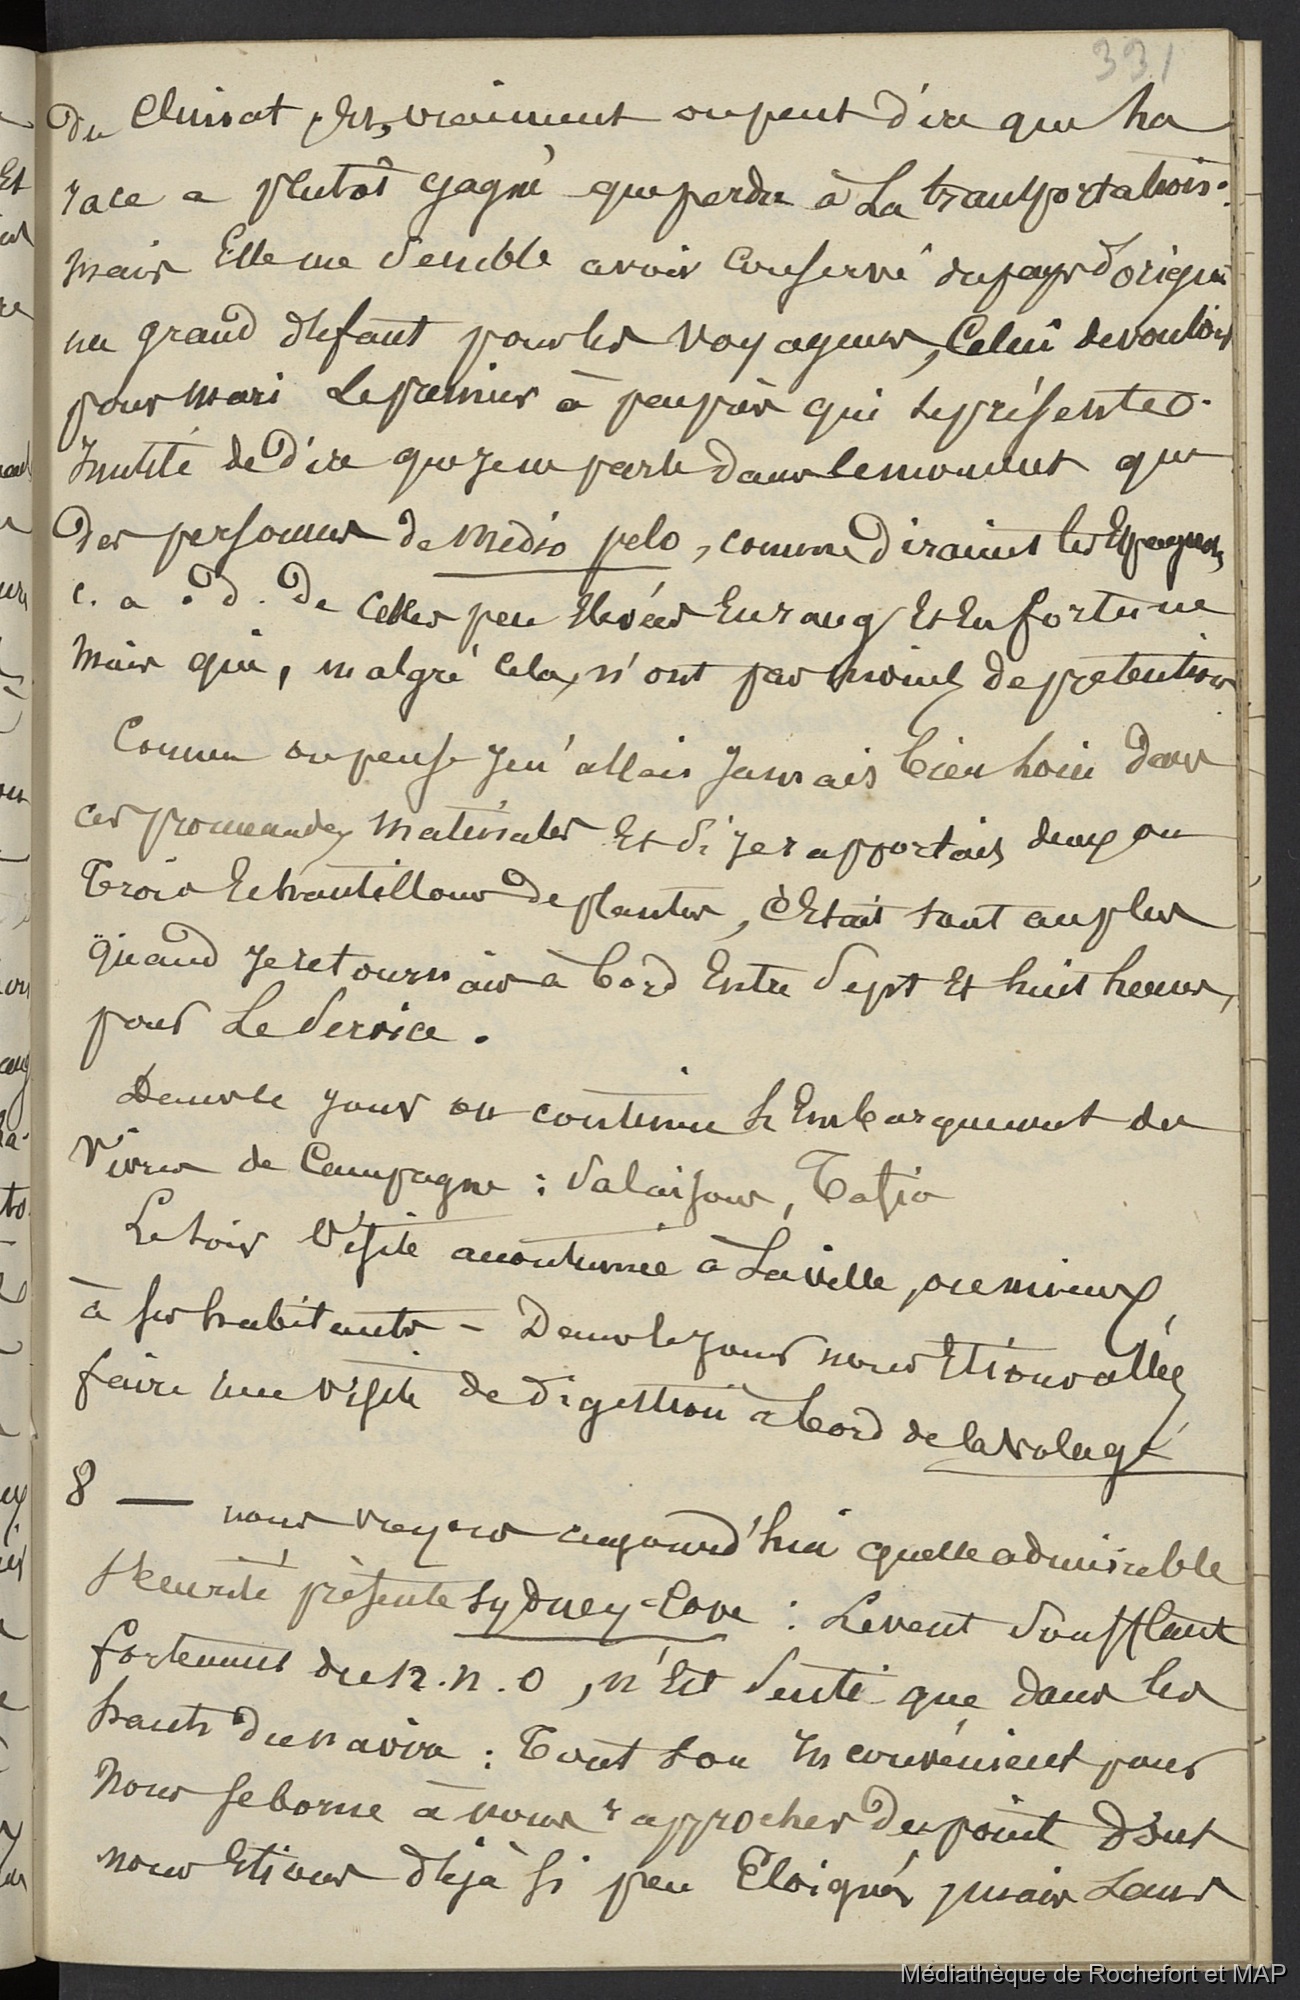 331
du Climat, Et, vraiment on peut dire que la
race a plutôt gagné que perdu à La transportation.
mais Elle me semble avoir conservé du pays d'origine
un grand défaut pour les voyageurs, Celui de vouloir
pour mari Le premier à peu près qui se présente.
Inutile de dire que je ne parle dans le moment que
des personnes de medio pelo, comme diraient les Espagnols,
c. a. d. de celles peu Elevées En rang Et En fortune
mais qui, malgré cela, n'ont pas moins de prétentions
Comme on pense je n'allais jamais bien loin dans
ces promenades matinales Et si je rapportais deux ou
Trois Echantillons de plantes, c'Etait tout au plus
quand je retournais à bord Entre Sept Et huit heures,
pour Le Service.
Dans le jour on continue L'Embarquement des
vivres de Campagne : Salaisons, Tafia
Le Soir Visite accoutumée à La ville, ou mieux,
à ses habitants – Dans le jour nous Etions allés
faire une visite de digestion à bord de la Volage
8 — nous voyons aujourd'hui quelle admirable
sécurité présente Sydney-Cove : Le vent Soufflant
fortement du N.N.O, n'Est Senti que dans les
hauts du navire : Tout son Inconvénient pour
nous se borne à nous rapprocher du point dont
nous Etions déjà si peu Eloignés, mais Sans
Médiathèque de Rochefort et MAP